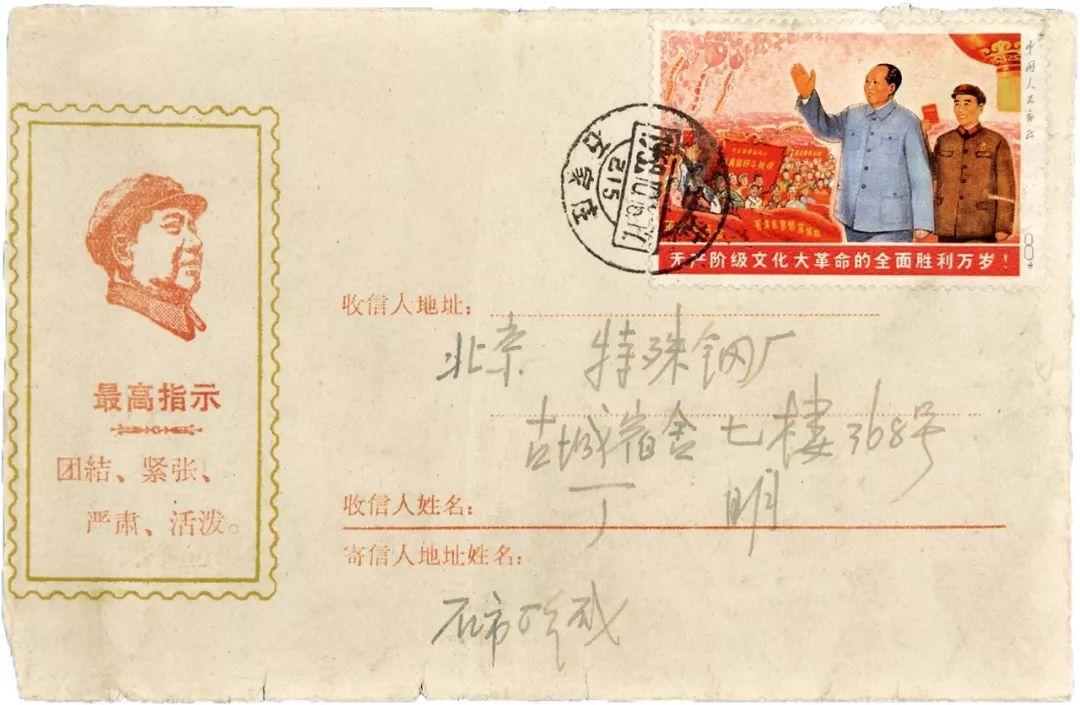 中国人民邮政
8分
无产阶级文化大革命的全面胜利万岁！
石家庄
215
最高指示
团結、紧张、
严肃、活泼。
收信人地址：
北京 特殊钢厂
古城宿舍七楼368号
收信人姓名：
丁 明
寄信人地址姓名：
石市